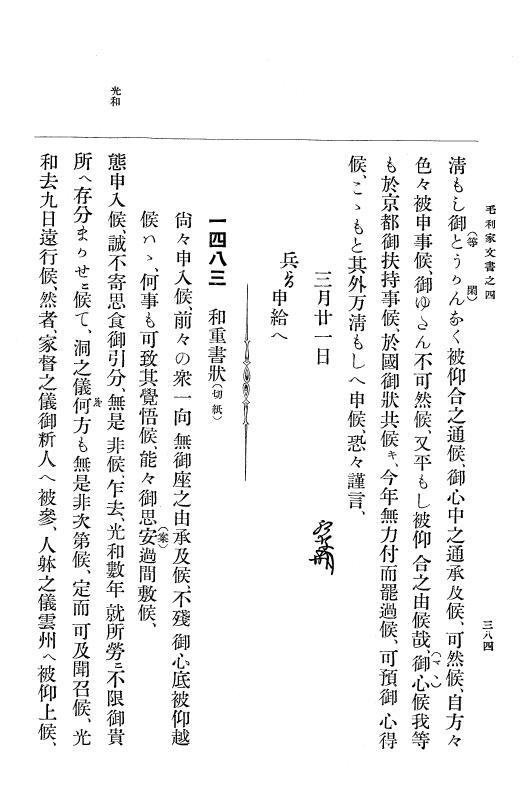 毛利家文書之四
三八四
清もし御とうかんなく被仰合之通候、御心中之通承及候、可然候、自方々
(等閑)
色々被申事候、御ゆたん不可然候、又平もし被仰合之由候哉、御心候我等
(マヽ)
も於京都御扶持事候、於國御狀共候キ、今年無力付而罷過候、可預御心得
候、こゝもと其外万清もしへ申候、恐々謹言、
三月廿一日
兵 申給へ
一四八三 和重書狀(切紙)
尙々申入候、前々の衆一向無御座之由承及候、不殘御心底被仰越
候ハヽ、何事も可致其覺悟候、能々御思安過間敷候、
(案)
態申入候、誠不寄思食御引分、無是非候、乍去、光和數年就所勞ニ不限御貴
所へ存分まかせ候て、洞之儀何方も無是非次第候、定而可及聞召候、光
光和
和去九日遠行候、然者、家督之儀御新人へ被參、人躰之儀雲州へ被仰上候、